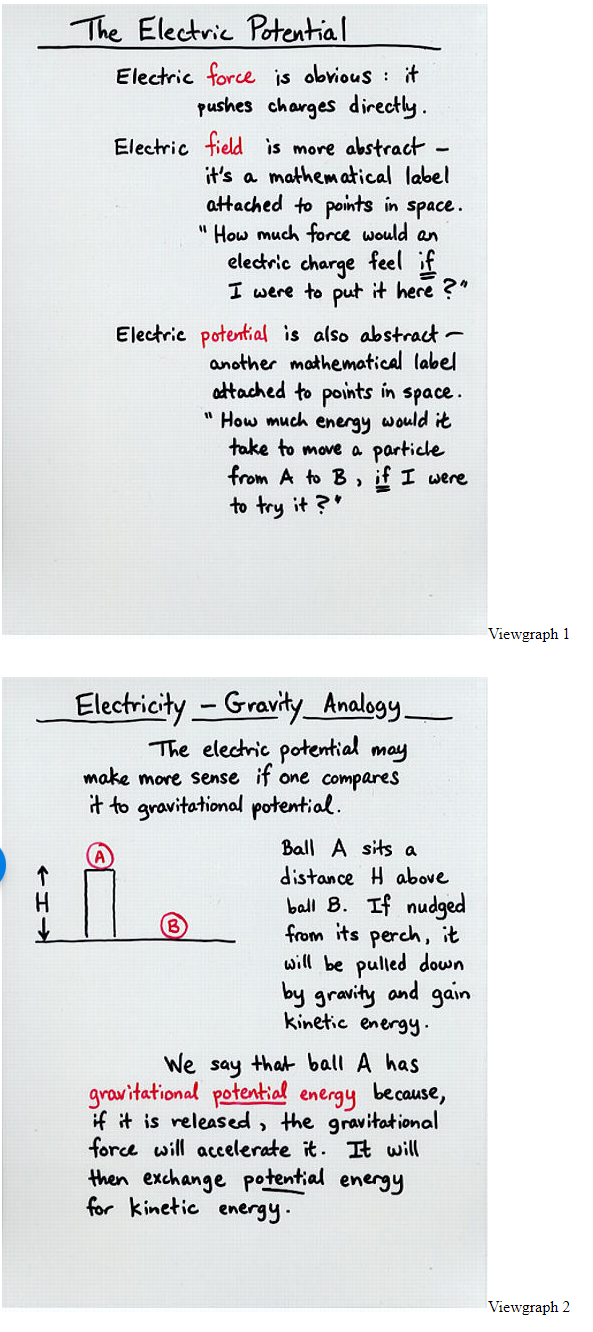 The Electric Potential
Electric force is obvious : it
pushes charges directly.
Electric field is more abstract –
it's a mathematical label
attached to points in space.
"How much force would an
electric charge feel if
I were to put it here ?"
Electric potential is also abstract –
another mathematical label
attached to points in space.
"How much energy would it
take to move a particle
from A to B , if I were
to try it ?"
Viewgraph 1
Electricity – Gravity Analogy
The electric potential may
make more sense if one compares
it to gravitational potential.
A
H
B
Ball A sits a
distance H above
ball B. If nudged
from its perch, it
will be pulled down
by gravity and gain
kinetic energy.
We say that ball A has
gravitational potential energy because,
if it is released , the gravitational
force will accelerate it. It will
then exchange potential energy
for kinetic energy.
Viewgraph 2